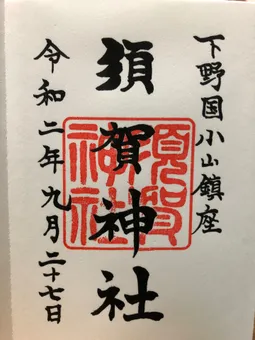 下野国小山鎮座
須賀神社
須賀神社
令和二年九月二十七日